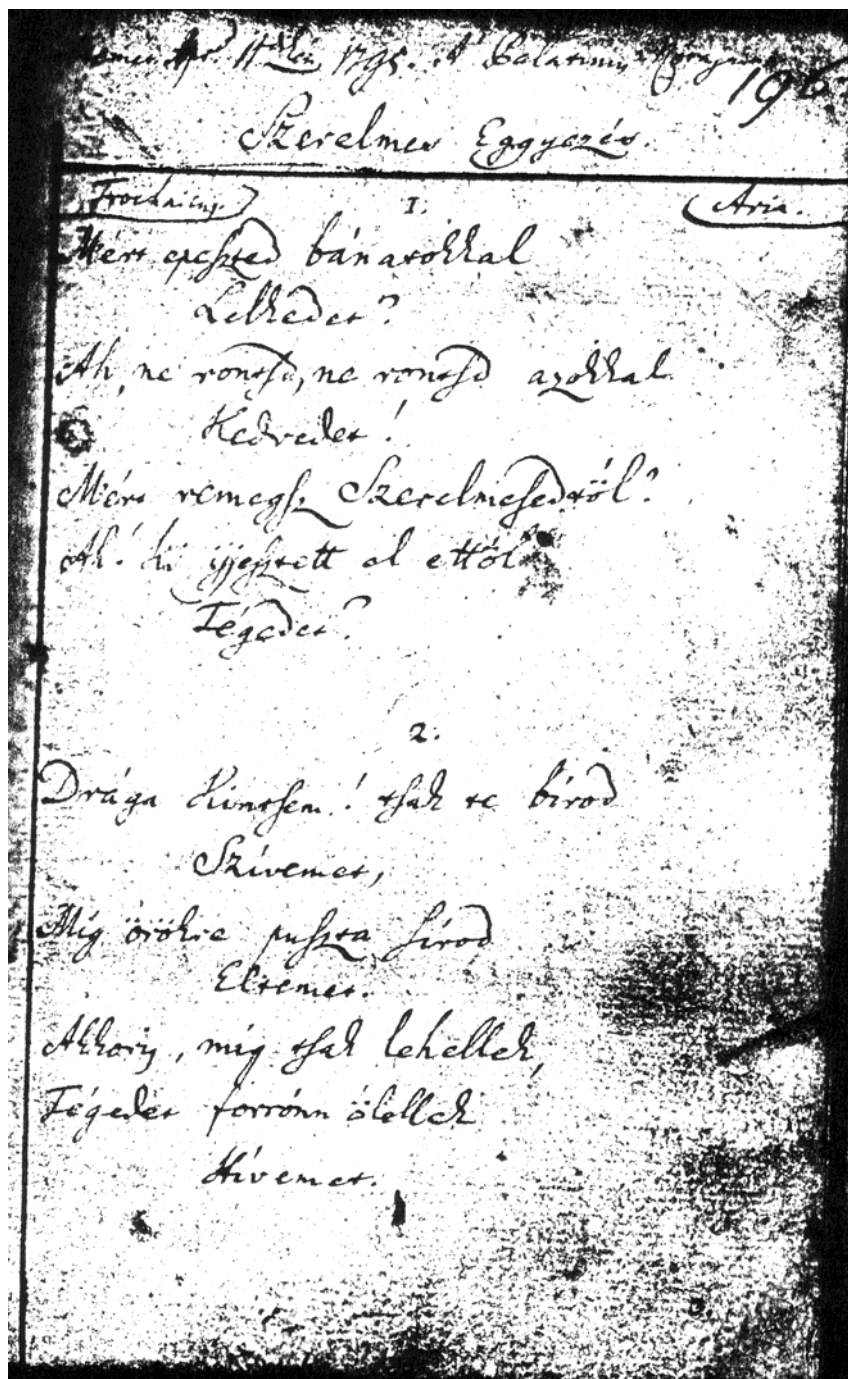 1795. A'
196
Szerelmes Eggyezés.
Trochaicus.
1.
Aria.
Mért epeszted bánatokkal
Lelkedet?
Ah, ne rontsd, ne rontsd azokkal
Kedvedet!
Mért remegsz Szerelmesedtöl?
Ah! ki ijjesztett el ettöl
Tégedet?
2.
Drága Kintsem! tsak te bírod
Szívemet,
Míg örökre puszta sírod
Eltemet.
Akkoris, míg tsak lehellek,
Tégedet forrónn ölellek
Hívemet.
3.